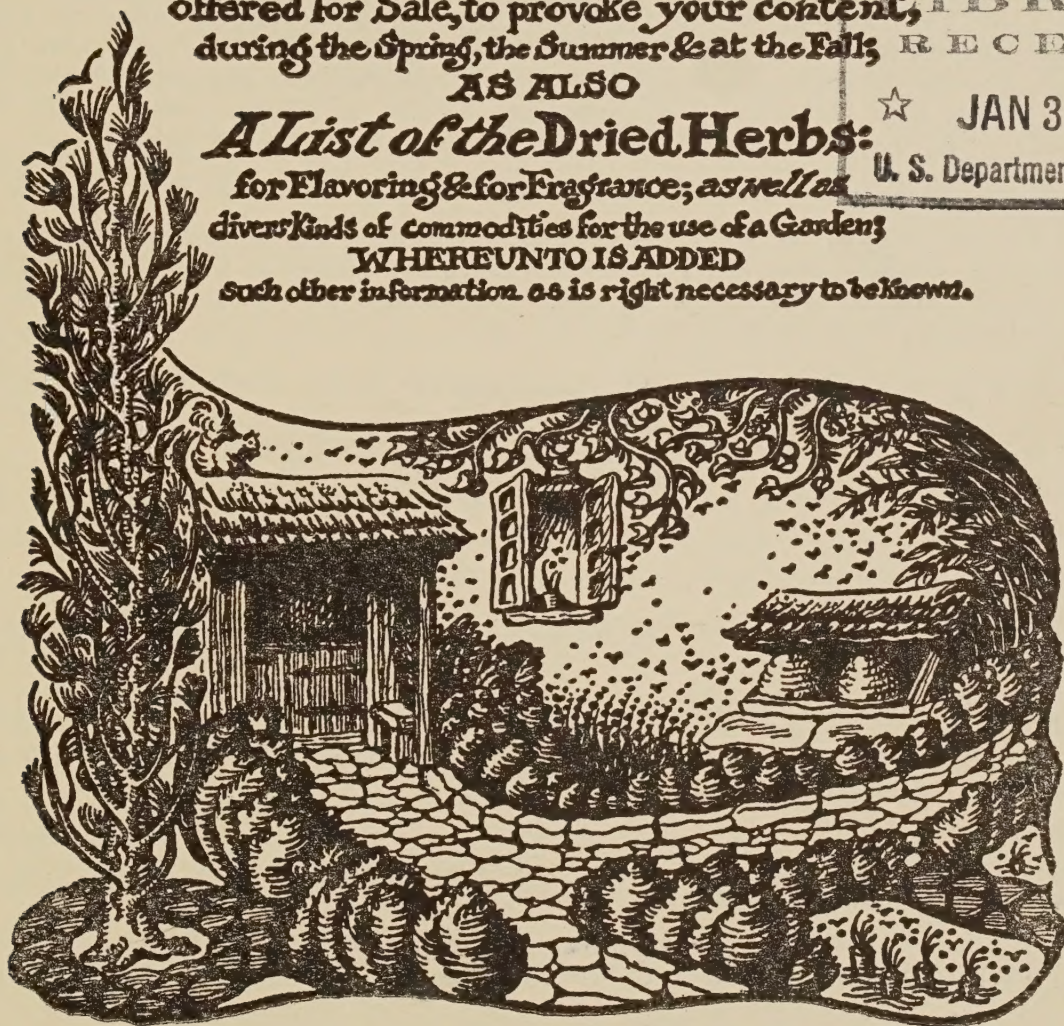 offered for Sale, to provoke your content,
during the Spring, the Summer & at the Fall;
AS ALSO
A List of the Dried Herbs:
for Flavoring & for Fragrance; as well as
divers Kinds of commodities for the use of a Garden;
WHEREUNTO IS ADDED
such other information as is right necessary to be known.
RECE
☆ JAN 3
U. S. Departmen